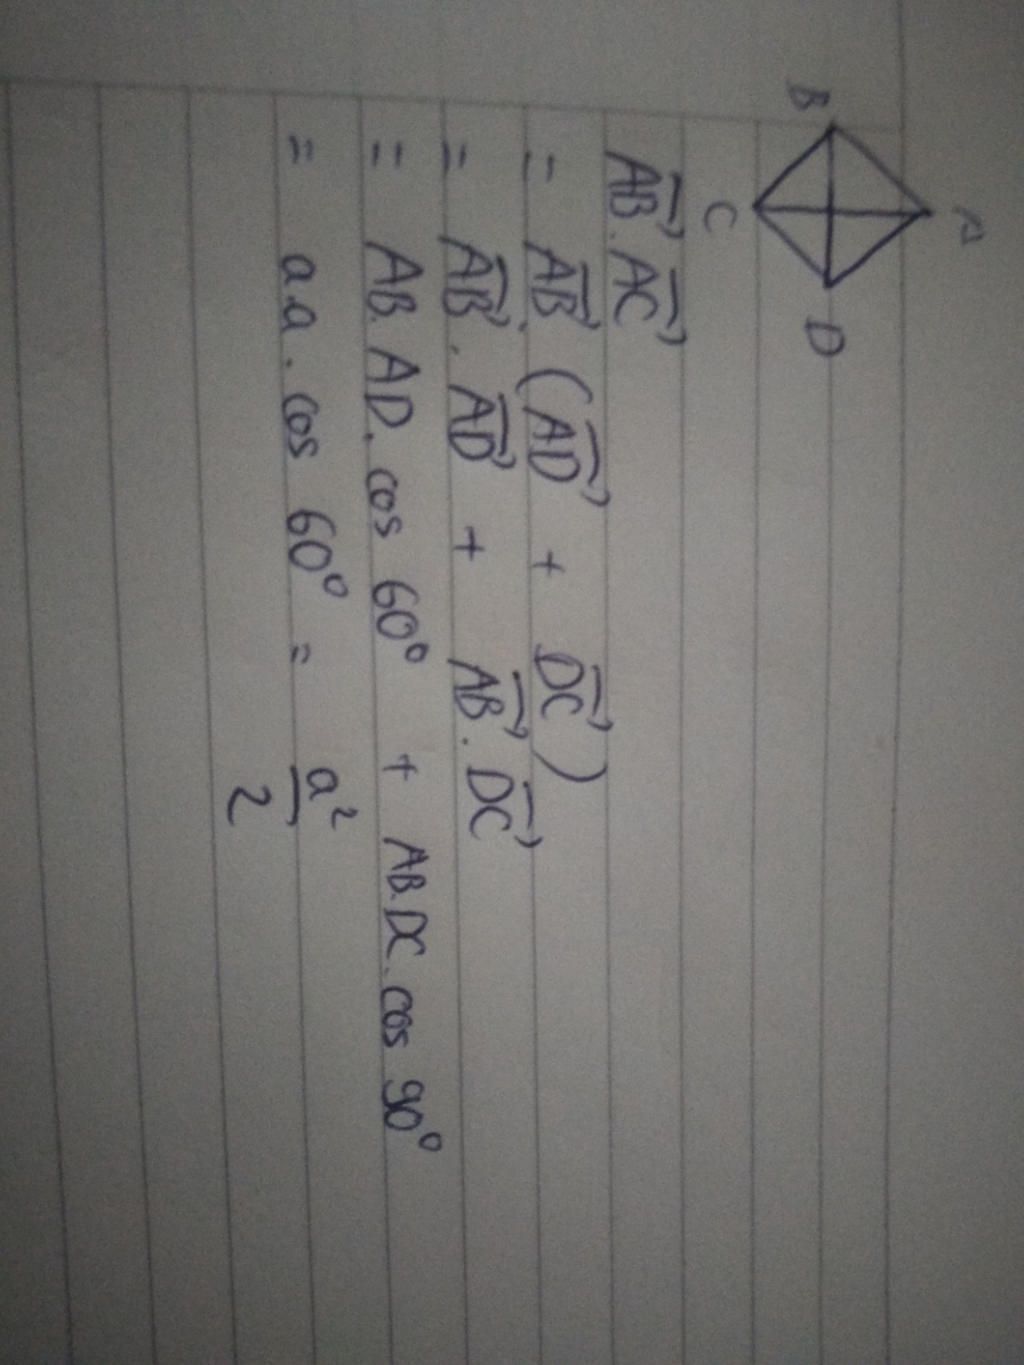 A
B
D
C
AB⃗ . AC⃗
= AB⃗ . (AD⃗ + DC⃗)
= AB⃗ . AD⃗ + AB⃗ . DC⃗
= AB. AD. cos 60° + AB. DC. cos 90°
= a.a. cos 60° = a²/2